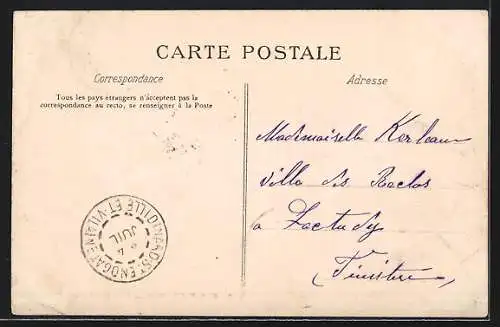 CARTE POSTALE
Correspondance
Adresse
Tous les pays étrangers n'acceptent pas la
correspondance au recto, se renseigner à la Poste
Mademoiselle Kerleau
villa des Roches
à Loctudy
Finistère
DINARD ST ENOGAT ILLE-ET-VILAINE
JUIL